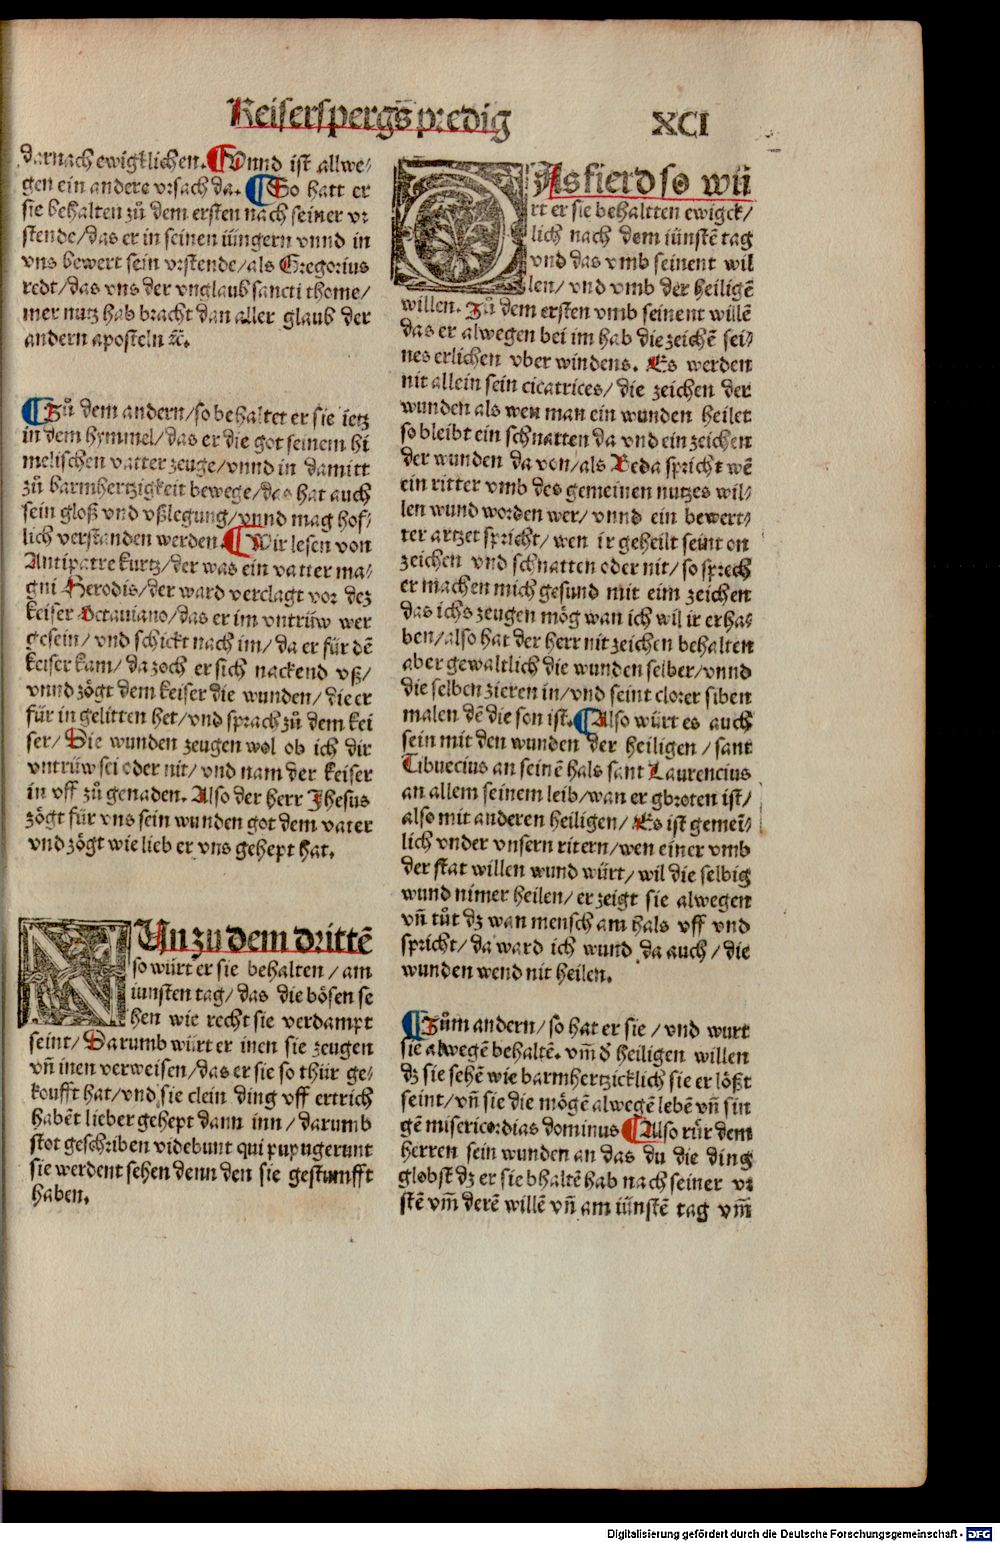 Keiserspergs̄ predig XCI
darnach ewigklichen. Vnnd ist allwe⸗
gen ein andere vrsach da. So hatt er
sie behalten zů dem ersten nach seiner vr
stende/das er in seinen iüngern vnnd in
vns bewert sein vrstende/als Gregorius
redt/das vns der vnglaub sancti thome/
mer nutz hab bracht dan aller glaub der
andern aposteln ⁊c̄.
Zů dem andern/so behaltet er sie ietz
in dem hymmel/das er die got seinem hi
melischen vatter zeuge/vnnd in damitt
zů barmhertzigkeit bewege/das hat auch
sein gloß vnd vßlegung/vnnd mag hof⸗
lich verstanden werden. Wir lesen von
Antipatre kurtz/der was ein vatter ma⸗
gni Herodis/der ward verclagt vor dez
keiser Octauiano/das er im vntrüw wer
gesein/ vnd schickt nach im/da er für dē
keiser kam/ da zoch er sich nackend vß/
vnnd zögt dem keiser die wunden/die er
für in gelitten het/vnd sprach zů dem kei
ser/ Die wunden zeugen wol ob ich dir
vntrüw sei oder nit/ vnd nam der keiser
in vff zů genaden. Also der herr Jhesus
zögt für vns sein wunden got dem vater
vnd zögt wie lieb er vns gehept hat.
NUn zu dem drittē
so würt er sie behalten/ am
iunsten tag/ das die bösen se
hen wie recht sie verdampt
seint/ Darumb würt er inen sie zeugen
vn̄ inen verweisen/das er sie so thür ge⸗
koufft hat/vnd sie clein ding vff ertrich
habēt lieber gehept dann inn/ darumb
stot geschriben videbunt qui pupugerunt
sie werdent sehen denn den sie gestumfft
haben.
DAs fierd so wü
rt er sie behaltten ewigck/
lich nach dem iünstē tag
vnd das vmb seinent wil
len/ vnd vmb der heiligē
willen. Zů dem ersten vmb seinent willē
das er alwegen bei im hab die zeichē sei⸗
nes erlichen vber windens. Es werden
nit allein sein cicatrices/ die zeichen der
wunden als wen man ein wunden heilet
so bleibt ein schnatten da vnd ein zeichen
der wunden da von/als Beda spricht wē
ein ritter vmb des gemeinen nutzes wil⸗
len wund worden wer/ vnnd ein bewert⸗
ter artzet spricht/ wen ir geheilt seint on
zeichen vnd schnatten oder nit/ so sprech
er machen mich gesund mit eim zeichen
das ichs zeugen mög wan ich wil ir erha⸗
ben/also hat der herr nit zeichen behalten
aber gewaltlich die wunden selber/vnnd
die selben zieren in/vnd seint clorer siben
malen dē die son ist. Also würt es auch
sein mit den wunden der heiligen/ sant
Tibuecius an seinē hals sant Laurencius
an allem seinem leib/wan er gbroten ist/
also mit anderen heiligen/ Es ist gemeī⸗
lich vnder vnsern ritern/wen einer vmb
der stat willen wund würt/ wil die selbig
wund nimer heilen/ er zeigt sie alwegen
vn̄ tůt dz wan mensch am hals vff vnd
spricht/ da ward ich wund da auch/ die
wunden wend nit heilen.
Zům andern/ so hat er sie/ vnd wurt
sie alwegē behaltē. vm̄ d̄ heiligen willen
dz sie sehē wie barmhertzicklich sie er lößt
seint/ vn̄ sie die mögē alwegē lebē vn̄ sin
gē misericordias dominus Also rür dem
herren sein wunden an das du die ding
globst dz er sie bhaltē hab nach seiner vr
stē vm̄ derē willē vn̄ am iünstē tag vm̄
Digitalisierung gefördert durch die Deutsche Forschungsgemeinschaft - DFG